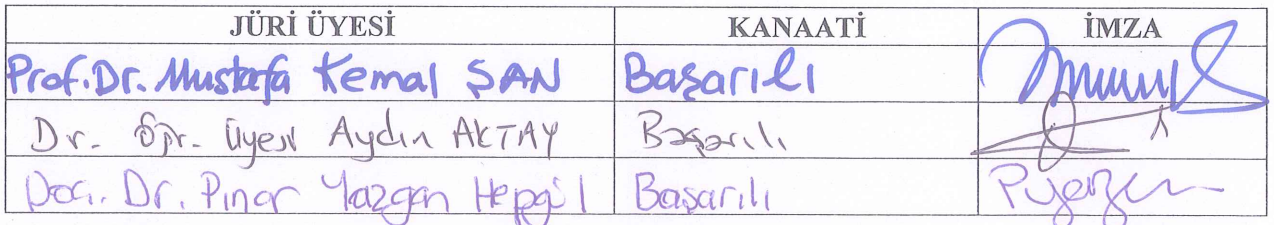 JÜRİ ÜYESİ KANAATİ İMZA
Prof. Dr. Mustafa Kemal ŞAN Başarılı
Dr. Öğr. Üyesi Aydın AKTAY Başarılı
Doç. Dr. Pınar Yazgan Hepgül Başarılı